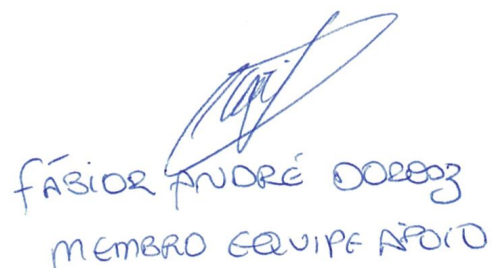 FÁBIOR ANDRÉ
MEMBRO EQUIPE APOIO